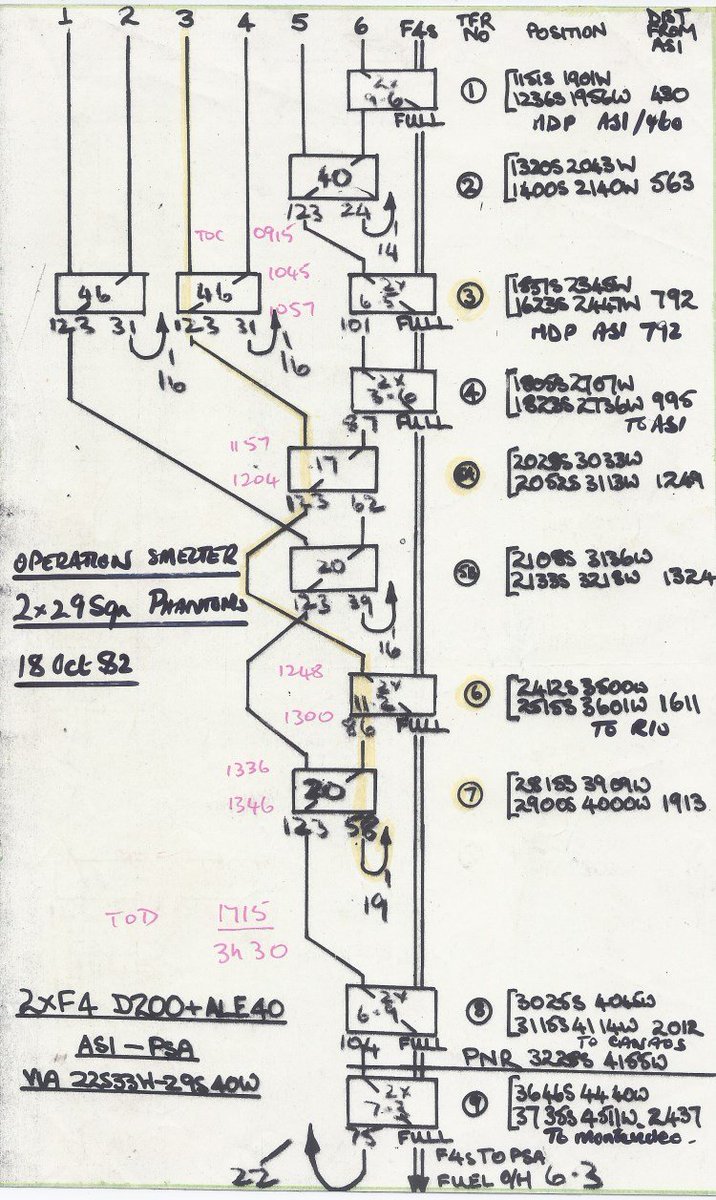 1 2 3 4 5 6 F4s TFR NO POSITION DIST FROM ASI
2x 9.6 FULL
① 1151S 1901W
1236S 1956W 480
MDP ASI/460
40
123 24
14
② 1320S 2043W
1400S 2140W 563
TOC 0915
1045
1057
46
123 31
16
46
123 31
16
2x
101 FULL
③
1623S 2447W 792
MDP ASI 792
2x
3.6
87 FULL
④ 1805S 2707W
1823S 2736W 995
TO ASI
1157
1204
17
123 62
5A 2028S 3033W
2052S 3113W 1249
OPERATION SMELTER
2x29Sqn PHANTOMS
18 Oct 82
20
123 39
16
5B 2108S 3136W
2133S 3218W 1324
1248
1300
2x
86 FULL
⑥ 2412S 3500W
2515S 3601W 1611
TO RIO
1336
1346
123 58
19
⑦ 2815S 3909W
2900S 4000W 1913
TOD 1715
3h 30
2xF4 D200+ALE40
ASI-PSA
VIA 22S33W-29S40W
2x
6.9
104 FULL
⑧ 3025S 4045W
3115S 4114W 2012
TO CANAOS
PNR 3225S 4155W
2x
75 FULL
22
⑨ 3646S 4440W
3735S 4511W 2437
To Montevideo.
F4s TO PSA
FUEL O/H 6.3